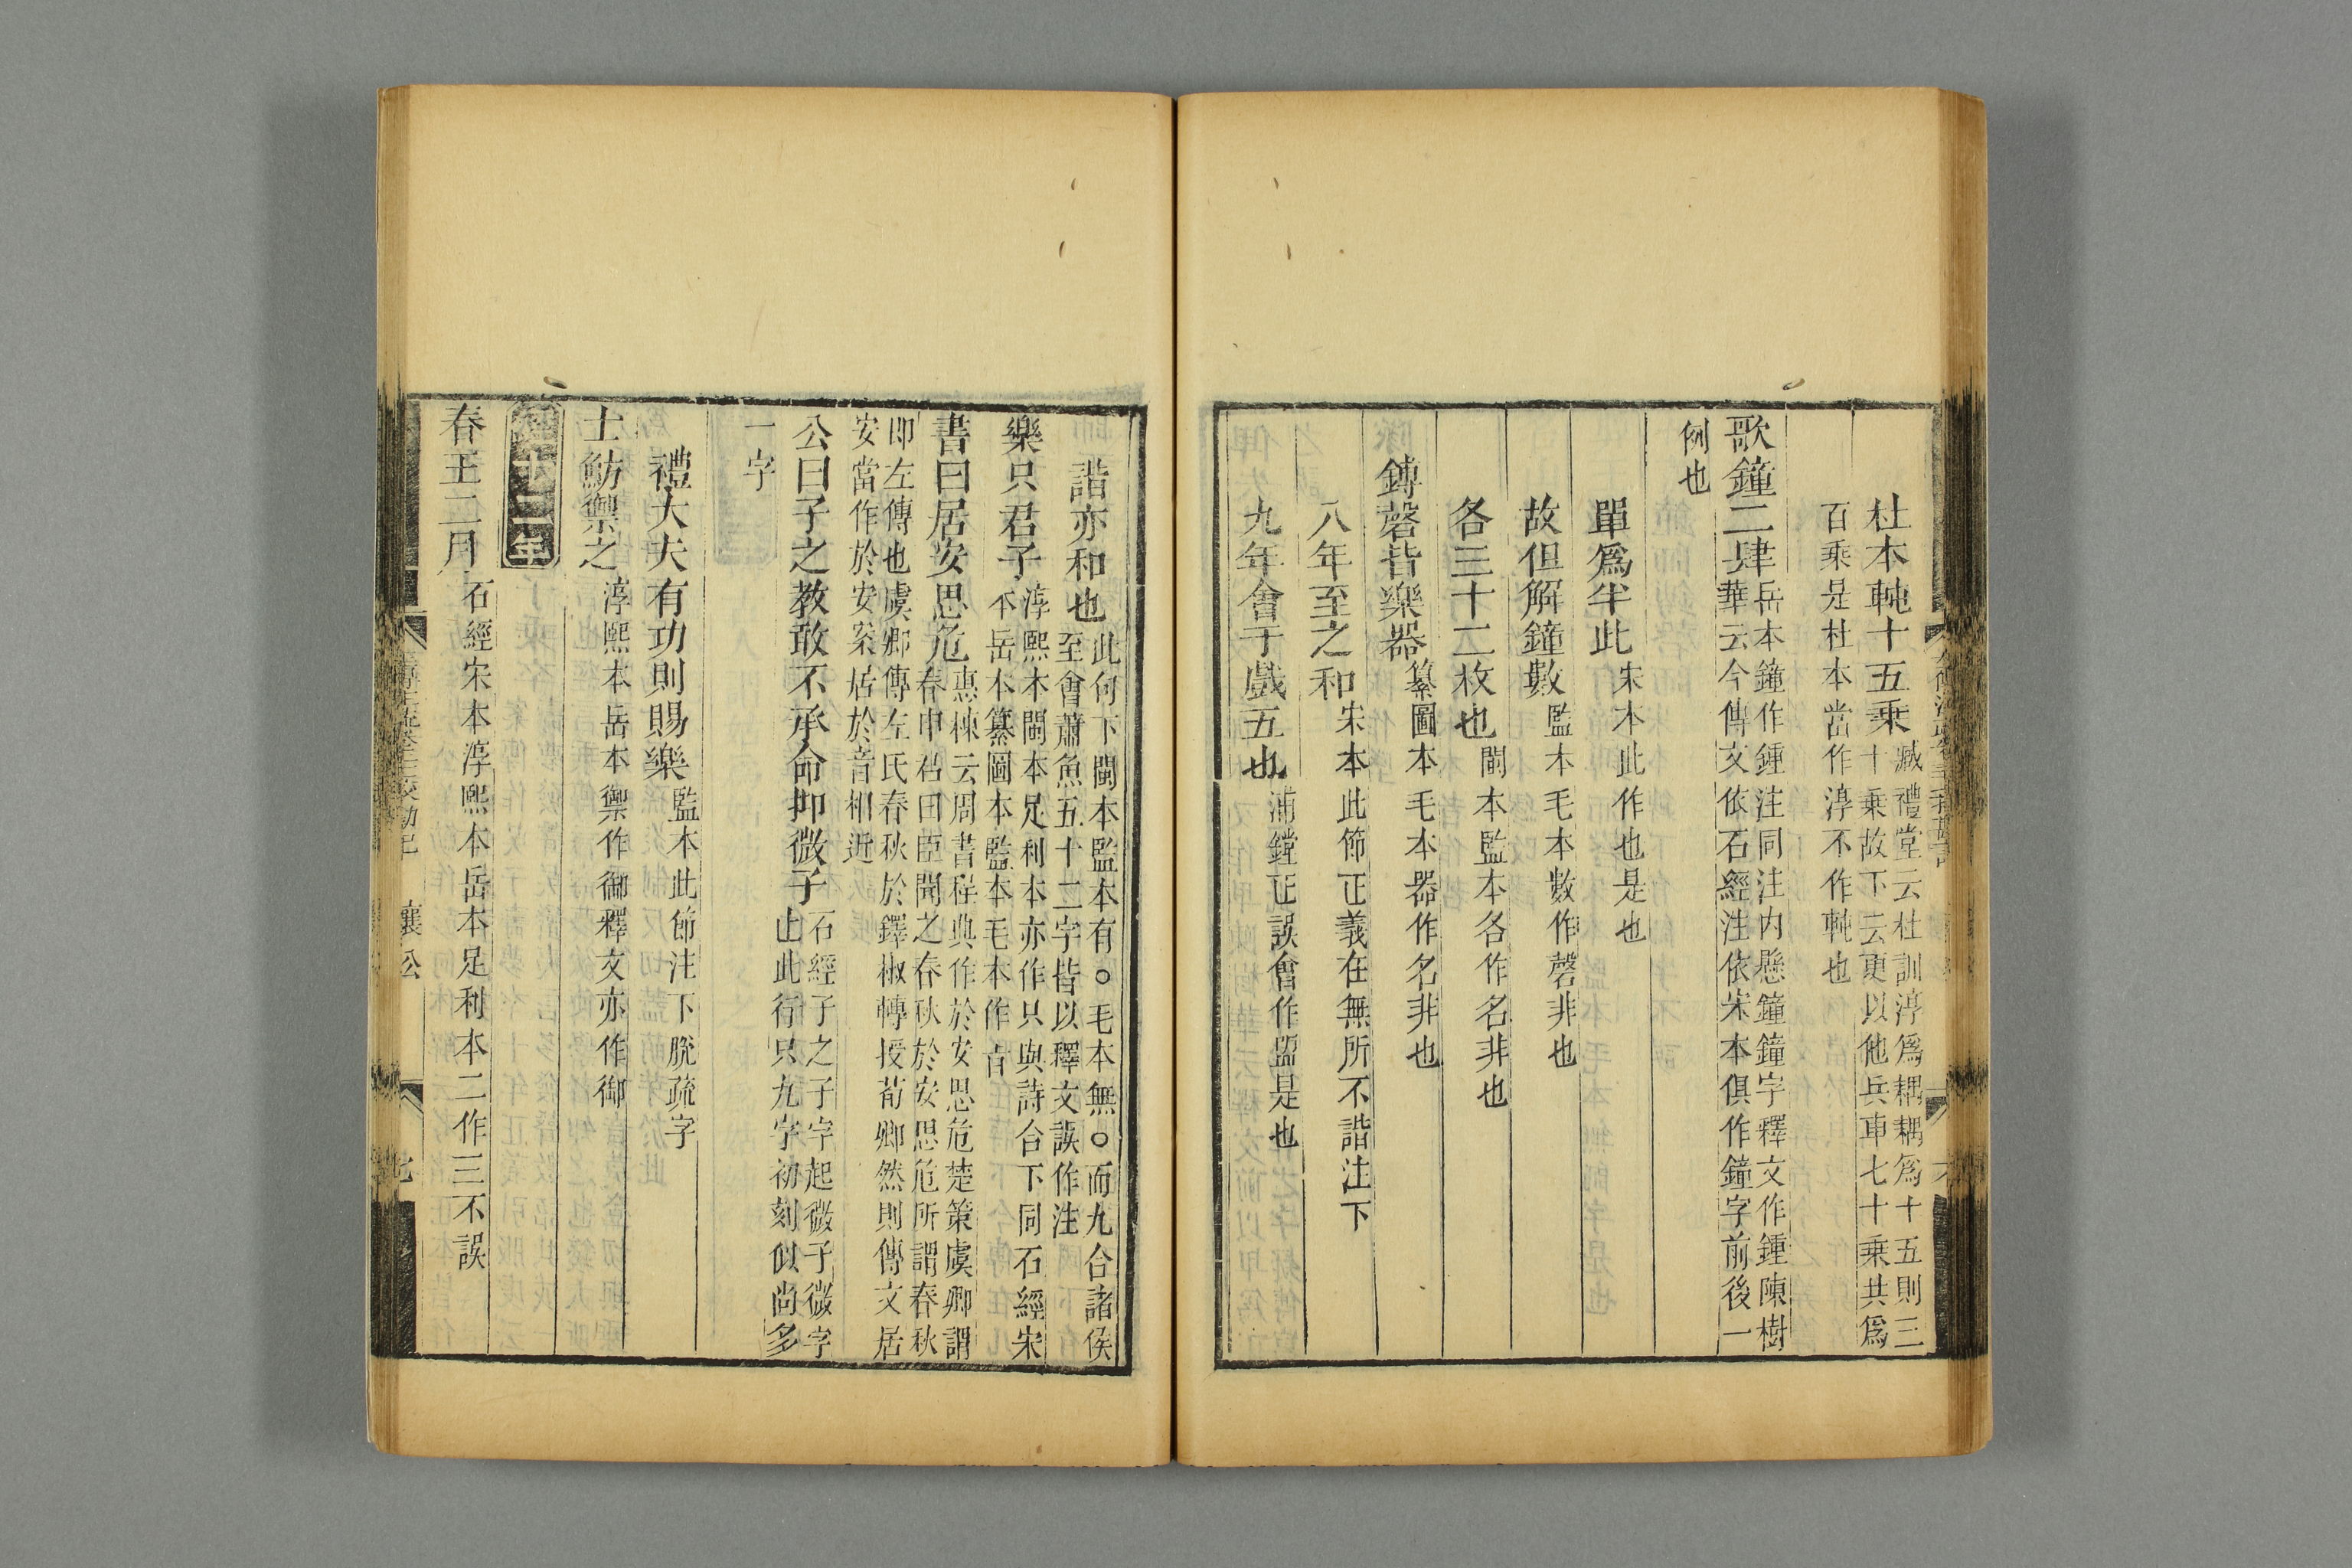 杜本軘十五乗臧禮堂云杜訓淳爲耦耦爲十五則三
十乗故下云更以他兵車七十乗共爲
百乗是杜本當作淳不作軘也
歌鐘二肆岳本鐘作鍾注同注内懸鐘鐘字釋文作鍾陳樹
華云今傳文依石經注依宋本俱作鐘字前後一
例也
單爲半此宋本此作也是也
故但解鐘數監本毛本數作磬非也
各三十二枚也閩本監本各作名非也
鎛磬皆樂器纂圖本毛本器作名非也
八年至之和宋本此節正義在無所不諧注下
九年會于戲五也浦鏜正誤會作盟是也
諧亦和也此何下閩本監本有○毛本無○而九合諸侯
至會蕭魚五十二字皆以釋文誤作注
樂只君子淳熙本閩本足利本亦作只與詩合下同石經宋
本岳本纂圖本監本毛本作㫖
書曰居安思危惠棟云周書程典作於安思危楚策虞卿謂
春申君曰臣聞之春秋於安思危所謂春秋
卽左傳也虞卿傳左氏春秋於鐸椒轉授荀卿然則傳文居
安當作於安案居於音相近
公曰子之教敢不承命抑微子石經子之子字起微子微字
止此行只九字初刻似尚多
一字
禮大夫有功則賜樂監本此節注下脫疏字
士魴禦之淳熙本岳本禦作御釋文亦作御
十二年
春王二月石經宋本淳熙本岳本足利本二作三不誤
襄公